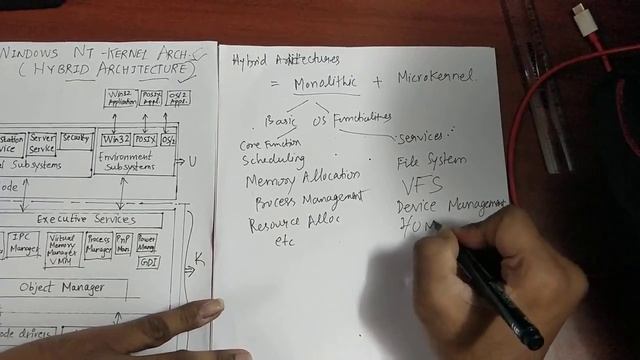 WINDOWS NT - KERNEL ARCH.
(HYBRID ARCHITECTURE)
Win32 Application
POSIX Appl.
OS/2 Appl.
Station Service
Server Service
Security
Win32
POSIX
OS/2
Subsystems
Environment Subsystems
U
Mode
Executive Services
IPC Manager
Virtual Memory Manager VMM
Process Manager
PnP Man.
Power Manager
GDI
K
Object Manager
mode drivers
Hybrid Architectures
= Monolithic + Microkernel.
Basic OS Functionalities
Core Function
Scheduling
Memory Allocation
Process Management
Resource Alloc
etc
Services:
File System
VFS
Device Management
I/O M